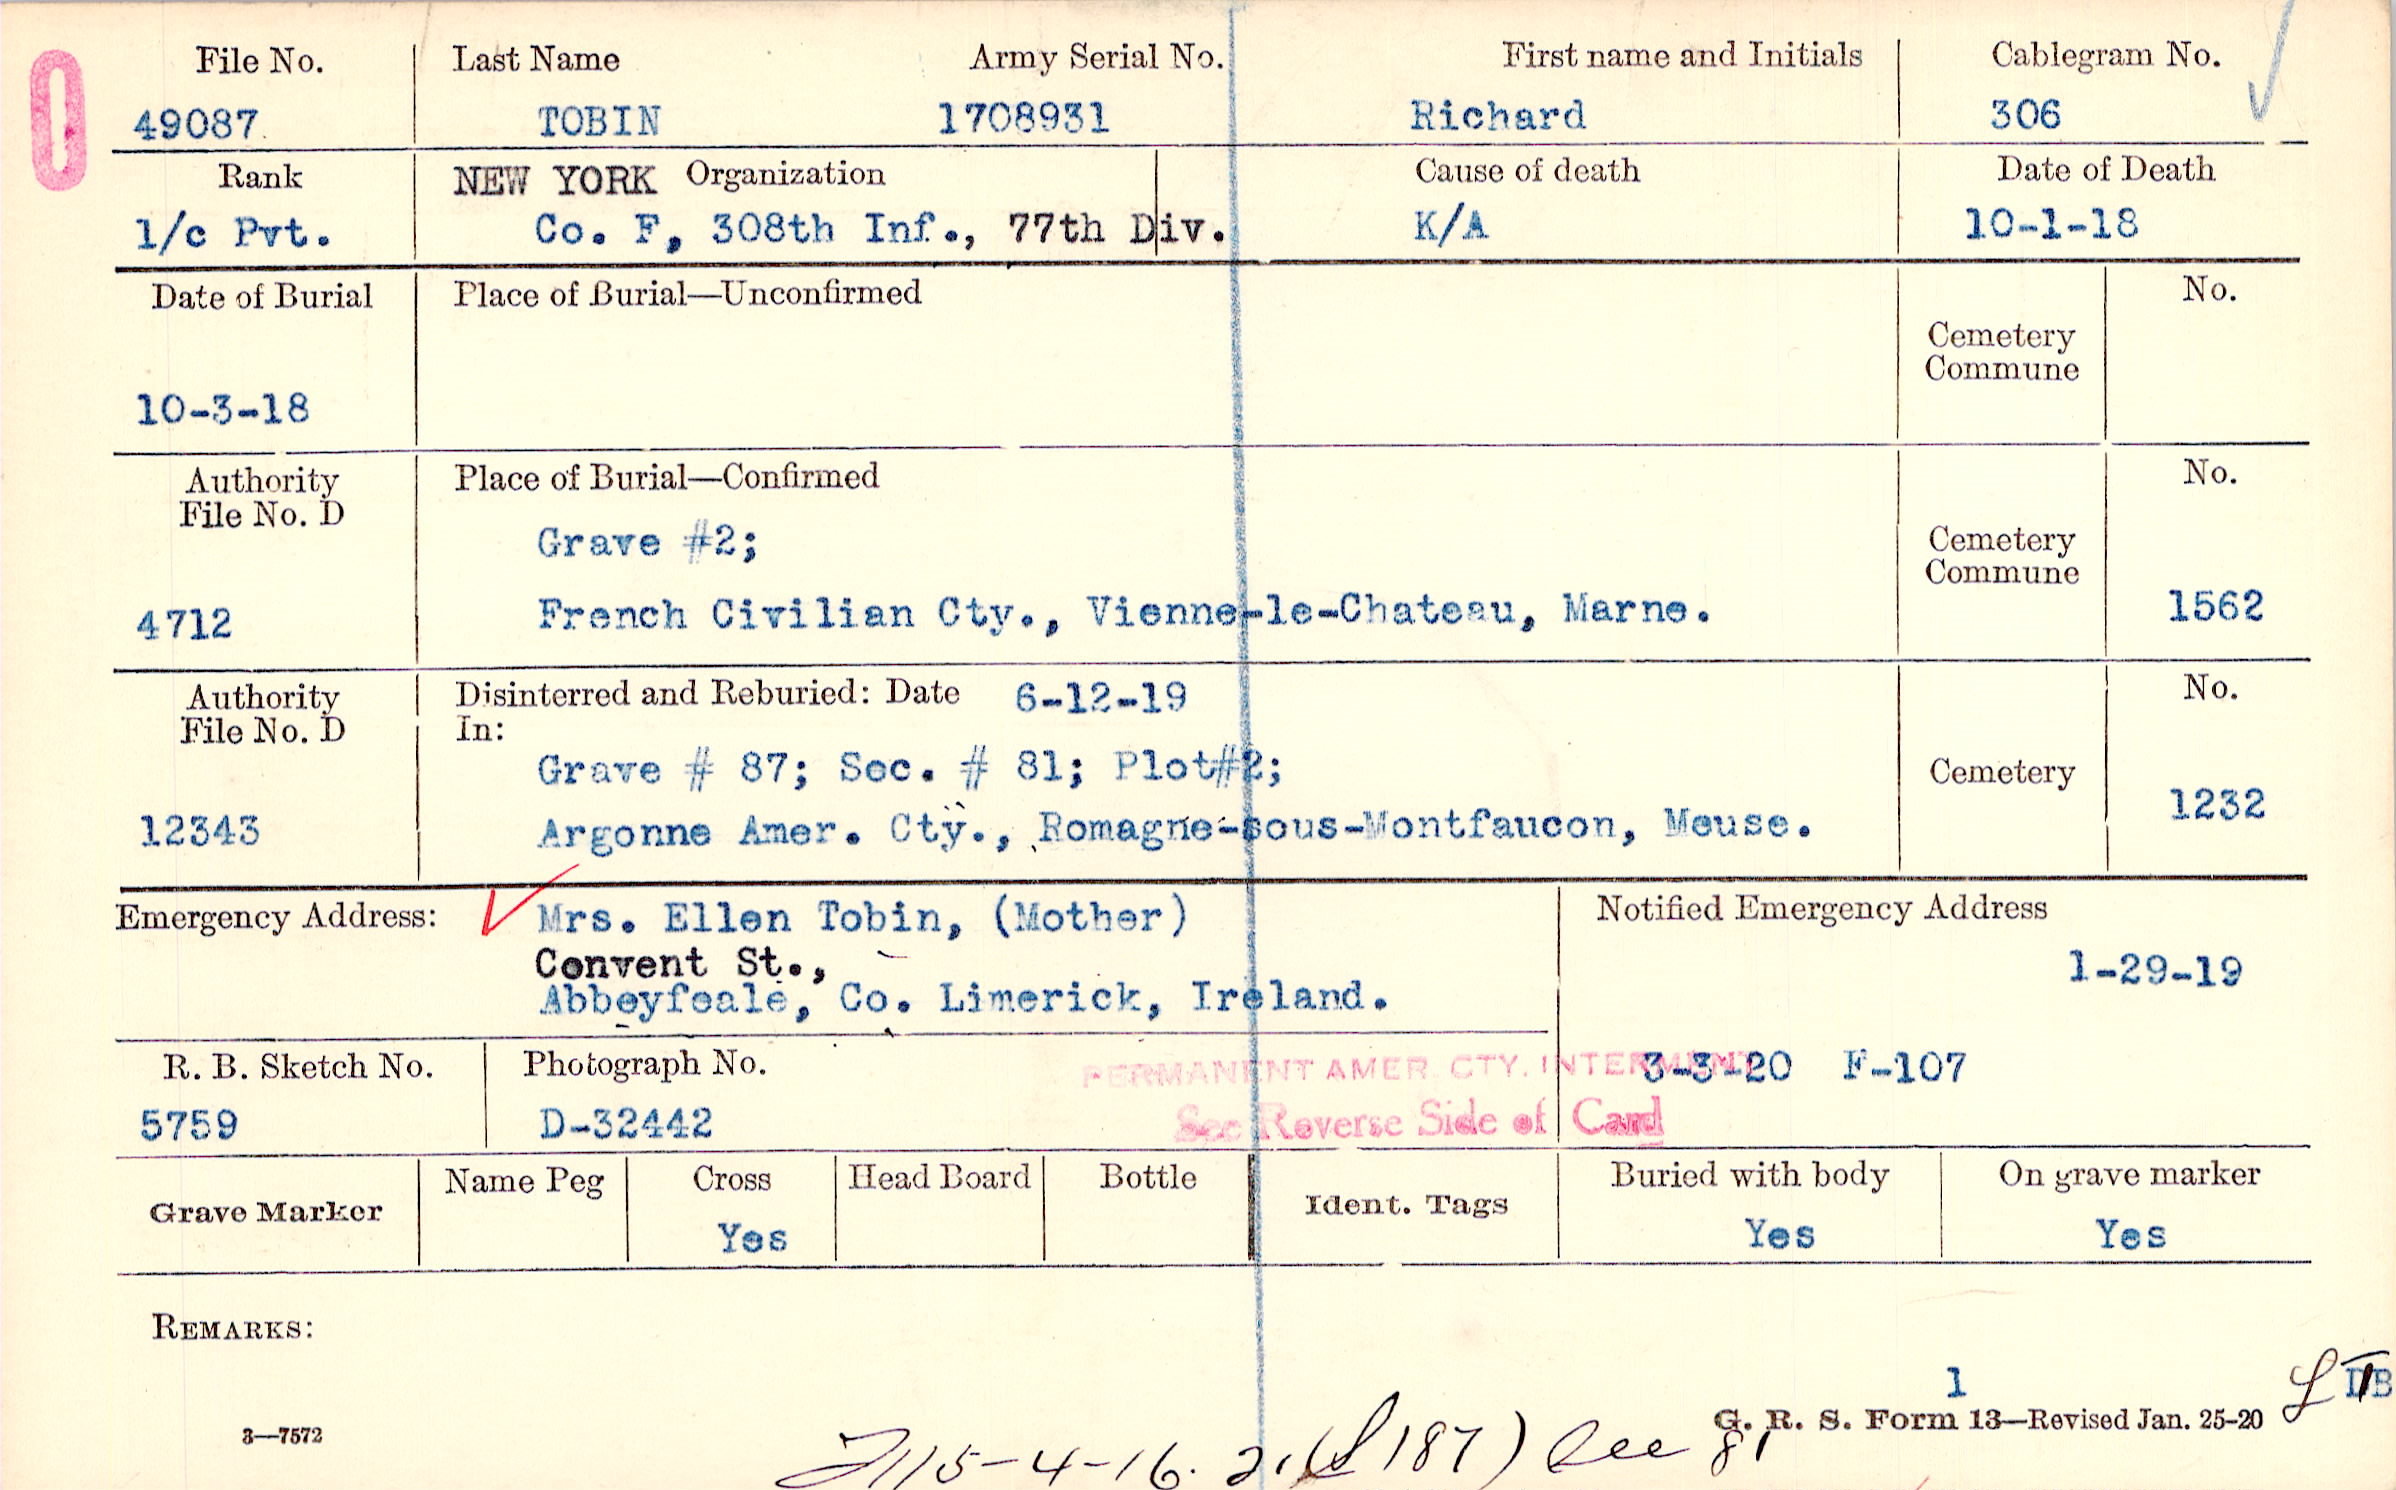 File No. Last Name Army Serial No. First name and Initials Cablegram No.
49087 TOBIN 1708931 Richard 306
Rank NEW YORK Organization Cause of death Date of Death
1/c Pvt. Co. F, 308th Inf., 77th Div. K/A 10-1-18
Date of Burial Place of Burial—Unconfirmed No.
Cemetery
Commune
10-3-18
Authority Place of Burial—Confirmed No.
File No. D
Grave #2; Cemetery
Commune
4712 French Civilian Cty., Vienne-le-Chateau, Marne. 1562
Authority Disinterred and Reburied: Date 6-12-19 No.
File No. D In:
Grave # 87; Sec. # 81; Plot#2; Cemetery
12343 Argonne Amer. Cty., Romagne-sous-Montfaucon, Meuse. 1232
Emergency Address: Mrs. Ellen Tobin, (Mother) Notified Emergency Address
Convent St.,
Abbeyfeale, Co. Limerick, Ireland. 1-29-19
R. B. Sketch No. Photograph No. PERMANENT AMER. CTY. INTERMENT 3-3-20 F-107
5759 D-32442 See Reverse Side of Card
Grave Marker Name Peg Cross Head Board Bottle Ident. Tags Buried with body On grave marker
Yes Yes Yes
REMARKS:
1
3—7572 G. R. S. Form 13—Revised Jan. 25-20
115-4-16. 2. 187) See 81